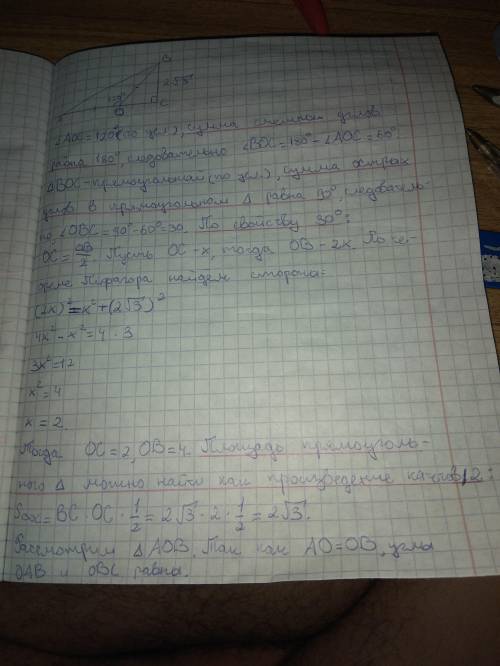 B
2√3
120°
O
C
∠AOC=120°(по усл.), сумма смежных углов
равна 180°, следовательно ∠BOC=180°-∠AOC=60°
△BOC-прямоугольный (по усл.), сумма острых
углов в прямоугольном △ равна 90°, следователь-
но, ∠OBC=90°-60°=30. По свойству 30°:
OC=OB/2. Пусть OC-x, тогда OB-2x. По те-
реме Пифагора найдем стороны:
(2x)²=x²+(2√3)²
4x²-x²=4·3
3x²=12
x²=4
x=2.
Тогда OC=2, OB=4. Площадь прямоуголь-
ного △ можно найти как произведение катетов/2:
=BC·OC·1/2=2√3·2·1/2=2√3.
Рассмотрим △AOB. Так как AO=OB, углы
OAB и OBC равны.